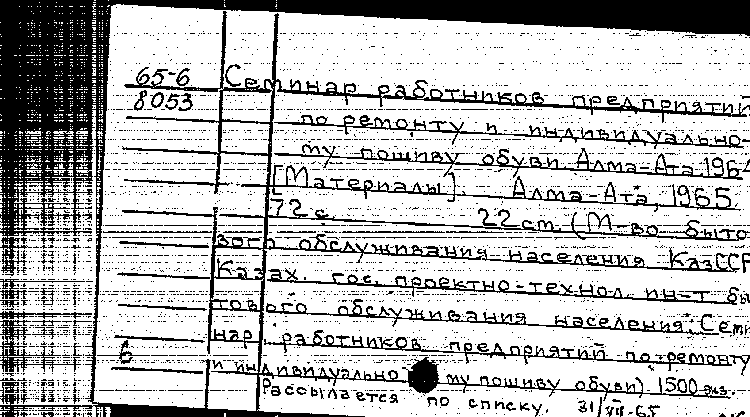 65-6
8053
Семинар работников предприятий
по ремонту и индивидуально-
му пошиву обуви. Алма-Ата. 1964
[Материалы]. Алма-Ата, 1965.
72 с. 22 см. (М-во быто
вого обслуживания населения КазССР
Казах. гос. проектно-технол. ин-т бы
тового обслуживания населения. Семи
нар работников предприятий по ремонту
и индивидуально му пошиву обуви) 1500 экз.
б
Рассылается по списку. 31/VII-65